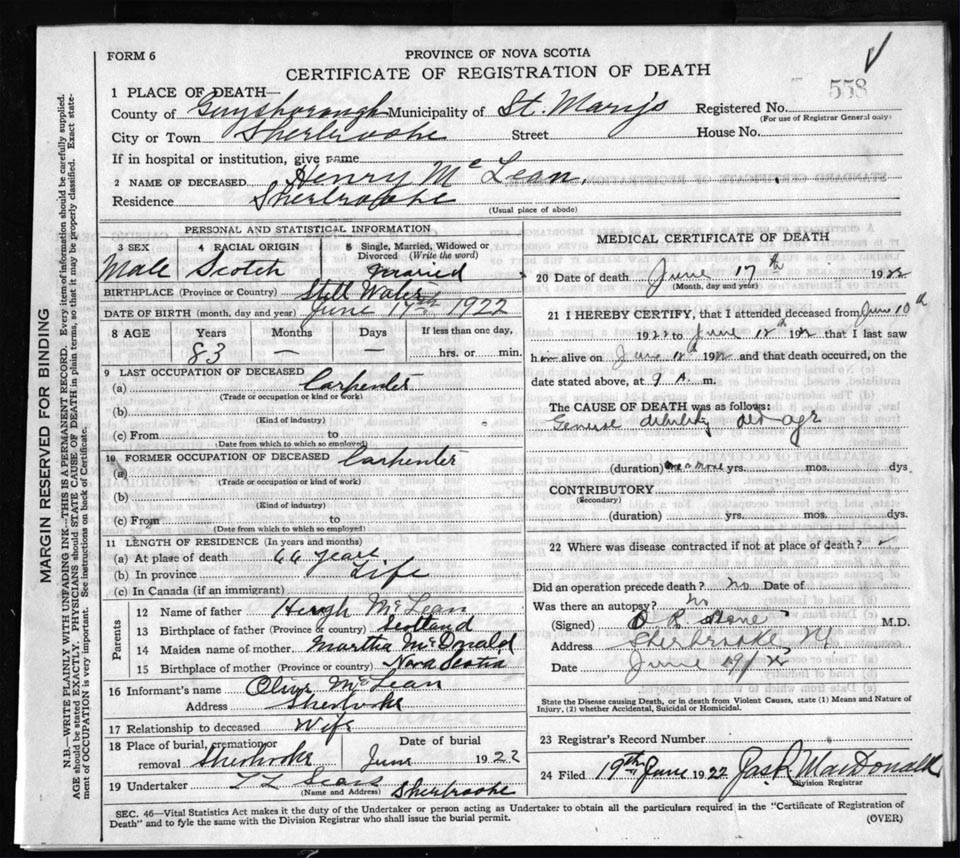 FORM 6
PROVINCE OF NOVA SCOTIA
CERTIFICATE OF REGISTRATION OF DEATH
558
1 PLACE OF DEATH—
County of Guysborough Municipality of St. Mary's Registered No.
(For use of Registrar General only)
City or Town Sherbrooke Street House No.
If in hospital or institution, give name
2 NAME OF DECEASED Henry Mc Lean.
Residence Sherbrooke
(Usual place of abode)
PERSONAL AND STATISTICAL INFORMATION
3 SEX 4 RACIAL ORIGIN 5 Single, Married, Widowed or Divorced (Write the word)
Male Scotch Maried
BIRTHPLACE (Province or Country) Still Water
DATE OF BIRTH (month, day and year) June 17th 1922
8 AGE Years Months Days If less than one day,
83 — — hrs. or min.
9 LAST OCCUPATION OF DECEASED
(a) Carpenter
(Trade or occupation or kind or work)
(b)
(Kind of industry)
(c) From to
(Date from which to which so employed)
10 FORMER OCCUPATION OF DECEASED Carpenter
(a)
(Trade or occupation or kind of work)
(b)
(Kind of industry)
(c) From to
(Date from which to which so employed)
11 LENGTH OF RESIDENCE (In years and months)
(a) At place of death 66 years
(b) In province Life
(c) In Canada (if an immigrant)
Parents
12 Name of father Hugh McLean
13 Birthplace of father (Province or country) Scotland
14 Maiden name of mother Martha McDonald
15 Birthplace of mother (Province or country) Nova Scotia
16 Informant's name Olive McLean
Address Sherbrooke
17 Relationship to deceased Wife
18 Place of burial, cremation or removal Sherbrooke Date of burial June 1922
19 Undertaker Sears Sherbrooke
(Name and Address)
MEDICAL CERTIFICATE OF DEATH
20 Date of death June 17th 1922
(Month, day and year)
21 I HEREBY CERTIFY, that I attended deceased from June 10th
1922 to June 12th 192 that I last saw
him alive on June 12th 192 and that death occurred, on the
date stated above, at 9 A. m.
The CAUSE OF DEATH was as follows:
debility old age
(duration) one or more yrs. mos. dys
CONTRIBUTORY
(Secondary)
(duration) yrs. mos. dys.
22 Where was disease contracted if not at place of death?
Did an operation precede death? no Date of
Was there an autopsy? no
(Signed) M.D.
Address Sherbrooke
Date June 19/22
State the Disease causing Death, or in death from Violent Causes, state (1) Means and Nature of
Injury, (2) whether Accidental, Suicidal or Homicidal.
23 Registrar's Record Number
24 Filed 19th June 1922 Jas. MacDonald
Division Registrar
SEC. 46—Vital Statistics Act makes it the duty of the Undertaker or person acting as Undertaker to obtain all the particulars required in the "Certificate of Registration of
Death" and to fyle the same with the Division Registrar who shall issue the burial permit.
(OVER)
MARGIN RESERVED FOR BINDING
N.B.—WRITE PLAINLY WITH UNFADING INK—THIS IS A PERMANENT RECORD. Every item of information should be carefully supplied.
AGE should be stated EXACTLY. PHYSICIANS should STATE CAUSE OF DEATH in plain terms, so that it may be properly classified. Exact state-
ment of OCCUPATION is very important. See instructions on back of Certificate.